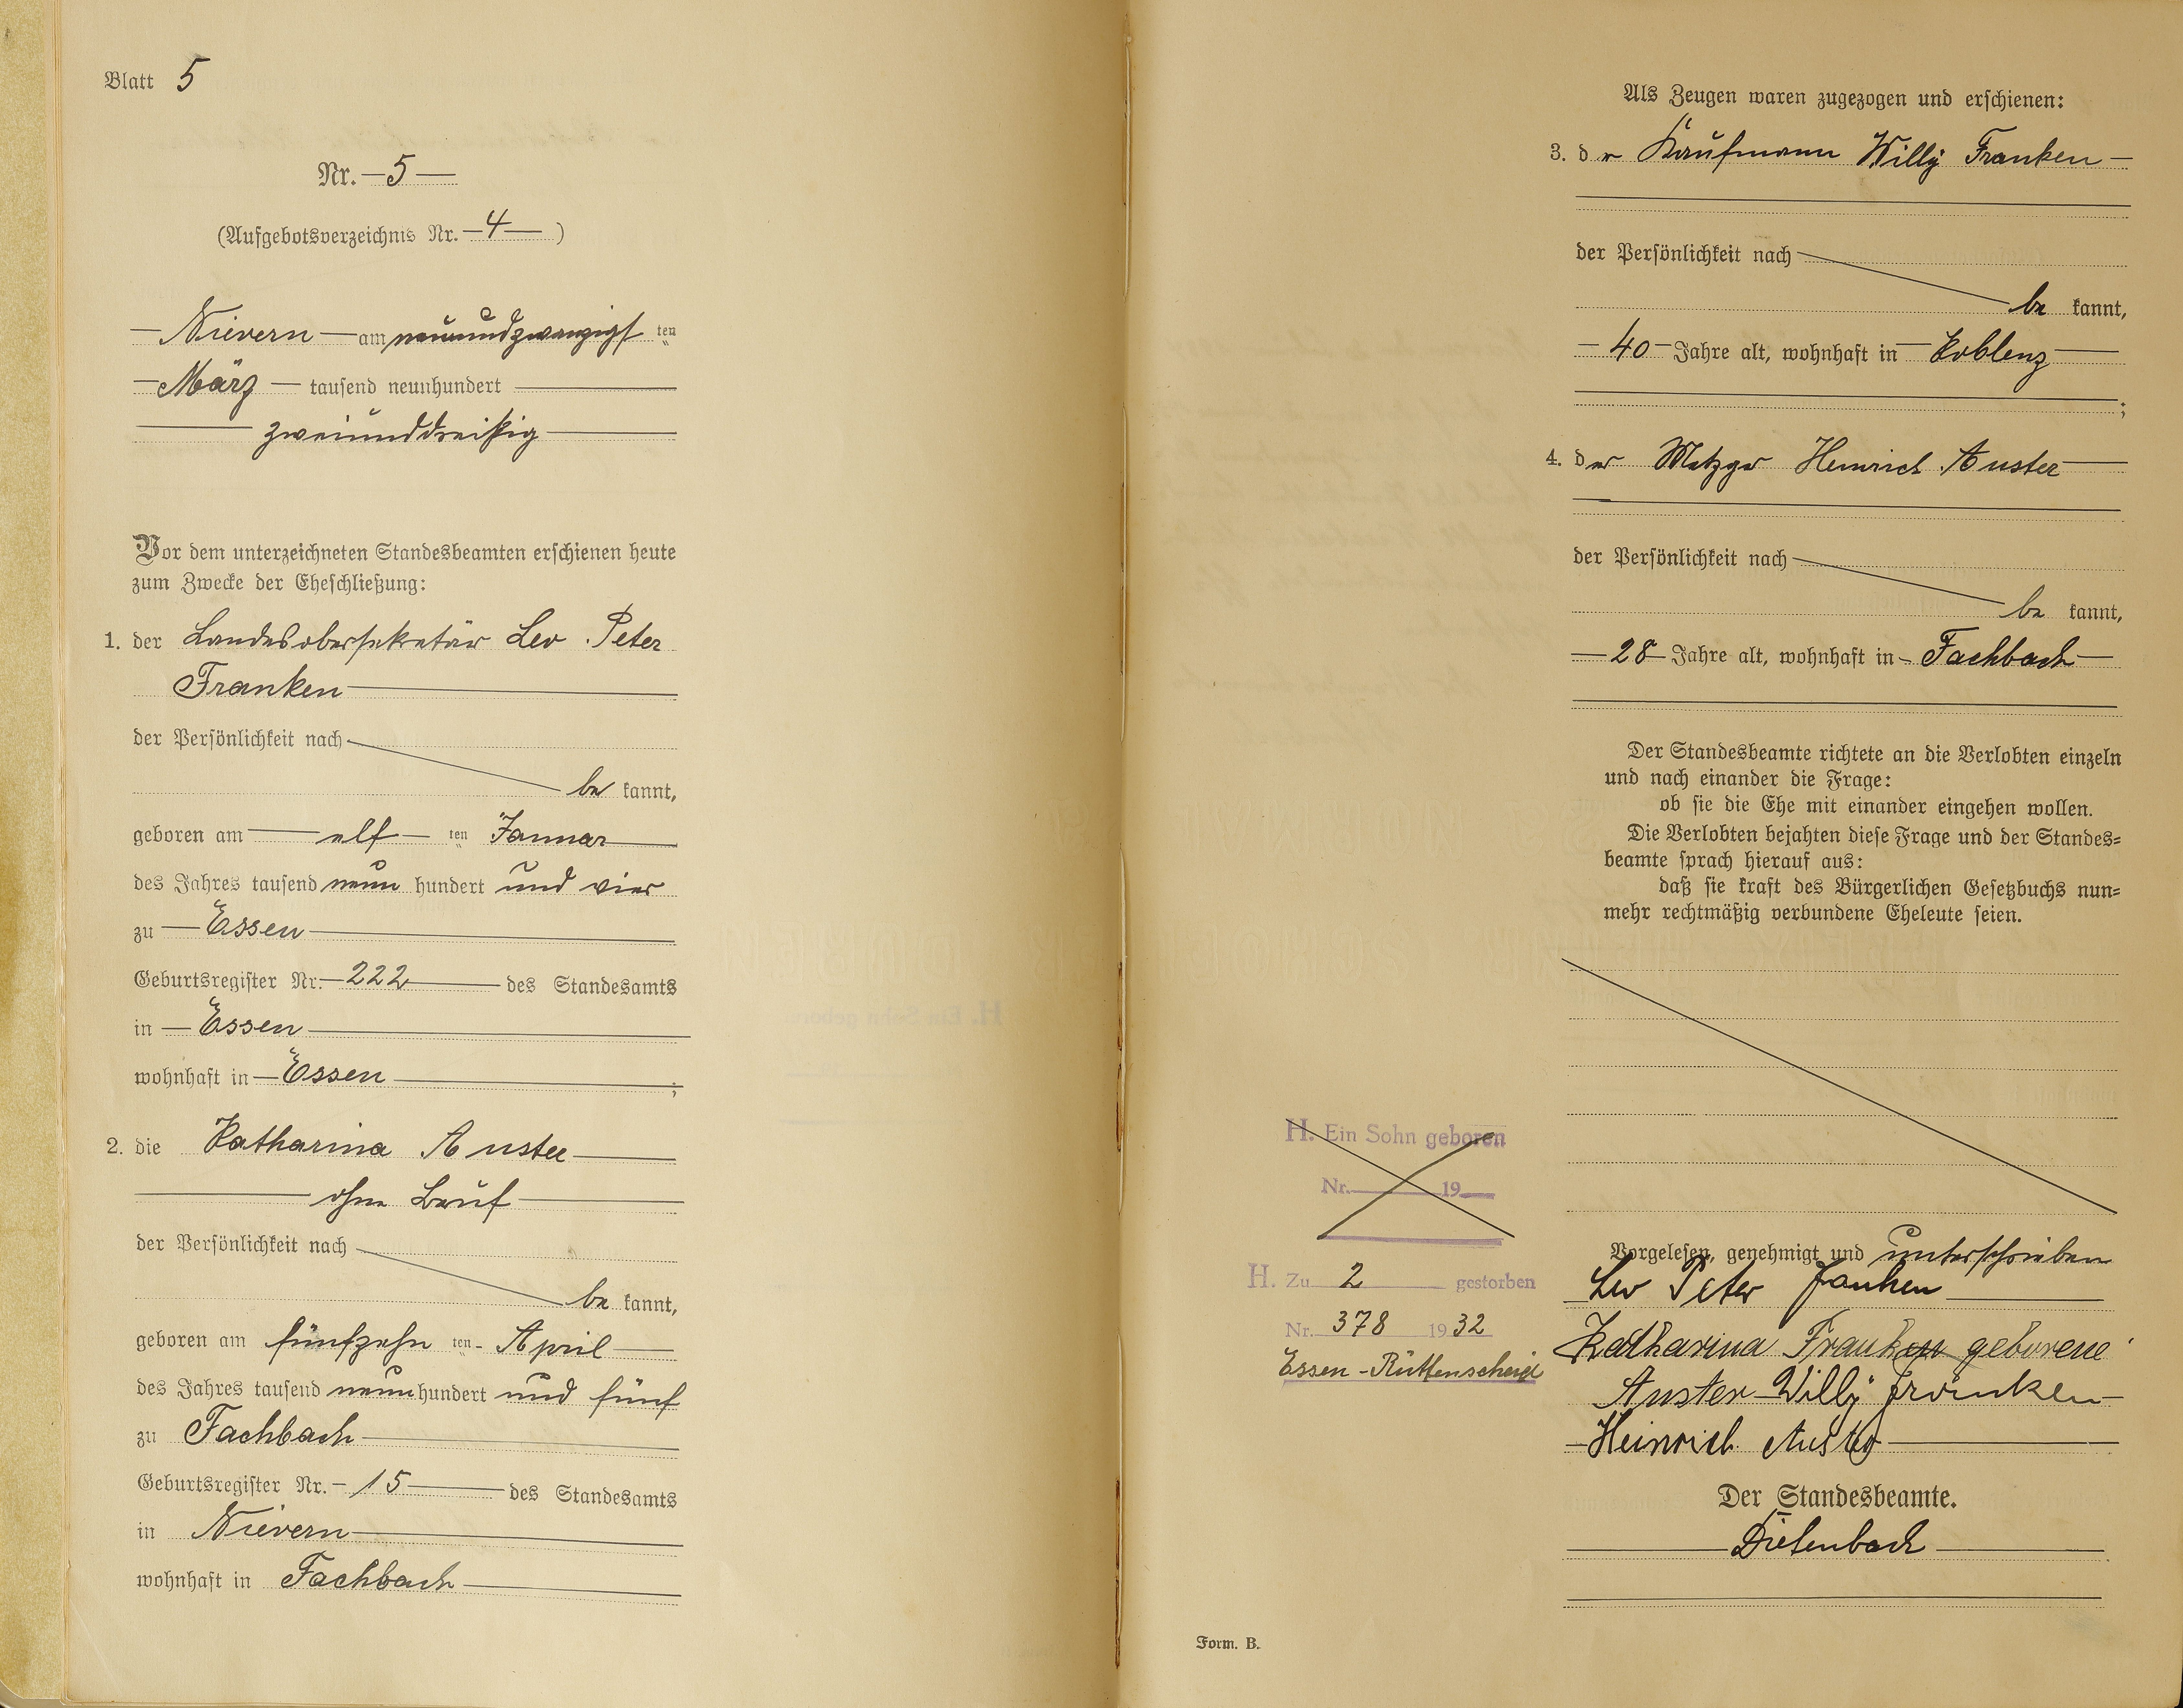 Blatt 5
Nr. 5
(Aufgebotsverzeichnis Nr. 4)
Nievern am neunundzwanzigsten
März tausend neunhundert
zweiunddreißig
Vor dem unterzeichneten Standesbeamten erschienen heute
zum Zwecke der Eheschließung:
1. der Landesobersekretär Leo Peter
Franken
der Persönlichkeit nach
be kannt,
geboren am elf ten Januar
des Jahres tausend neun hundert und vier
zu Essen
Geburtsregister Nr. 222 des Standesamts
in Essen
wohnhaft in Essen ;
2. die Katharina Auster
ohne Beruf
der Persönlichkeit nach
be kannt,
geboren am fünfzehn ten April
des Jahres tausend neun hundert und fünf
zu Fachbach
Geburtsregister Nr. 15 des Standesamts
in Nievern
wohnhaft in Fachbach
Als Zeugen waren zugezogen und erschienen:
3. der Kaufmann Willy Franken
der Persönlichkeit nach
be kannt,
40 Jahre alt, wohnhaft in Koblenz
;
4. der Metzger Heinrich Auster
der Persönlichkeit nach
be kannt,
28 Jahre alt, wohnhaft in Fachbach
Der Standesbeamte richtete an die Verlobten einzeln
und nach einander die Frage:
ob sie die Ehe mit einander eingehen wollen.
Die Verlobten bejahten diese Frage und der Standes=
beamte sprach hierauf aus:
daß sie kraft des Bürgerlichen Gesetzbuchs nun=
mehr rechtmäßig verbundene Eheleute seien.
H. Ein Sohn geboren
Nr. 19
H. Zu 2 gestorben
Nr. 378 1932
Essen-Rüttenscheid
Vorgelesen, genehmigt und unterschrieben
Leo Peter Franken
Katharina Franken geborene
Auster Willy Franken
Heinrich Auster
Der Standesbeamte.
Dietenbach
Form. B.